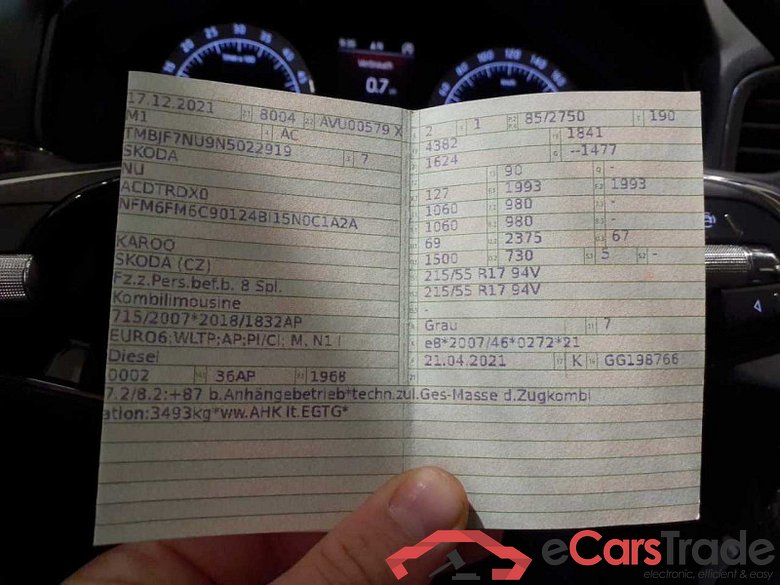 17.12.2021 8004 AVU00579 X
M1 AC
TMBJF7NU9N5022919 7
SKODA
NU
ACDTRDX0
NFM6FM6C90124BI15N0C1A2A
KAROQ
SKODA (CZ)
Fz.z.Pers.bef.b. 8 Spl.
Kombilimousine
715/2007*2018/1832AP
EURO6;WLTP;AP;PI/CI; M, N1 I
Diesel
0002 36AP 1968
7.2/8.2:+87 b.Anhängebetrieb*techn.zul.Ges-Masse d.Zugkombi
ation:3493kg*ww.AHK lt.EGTG*
2 1 85/2750 190
4382 1841
1624 --1477
90 -
127 1993 1993
1060 980 -
1060 980 -
69 2375 67
1500 730 5 -
215/55 R17 94V
215/55 R17 94V
-
Grau 7
e8*2007/46*0272*21
21.04.2021 K GG198766
Verbrauch
0.7
eCarsTrade
electronic, efficient & easy